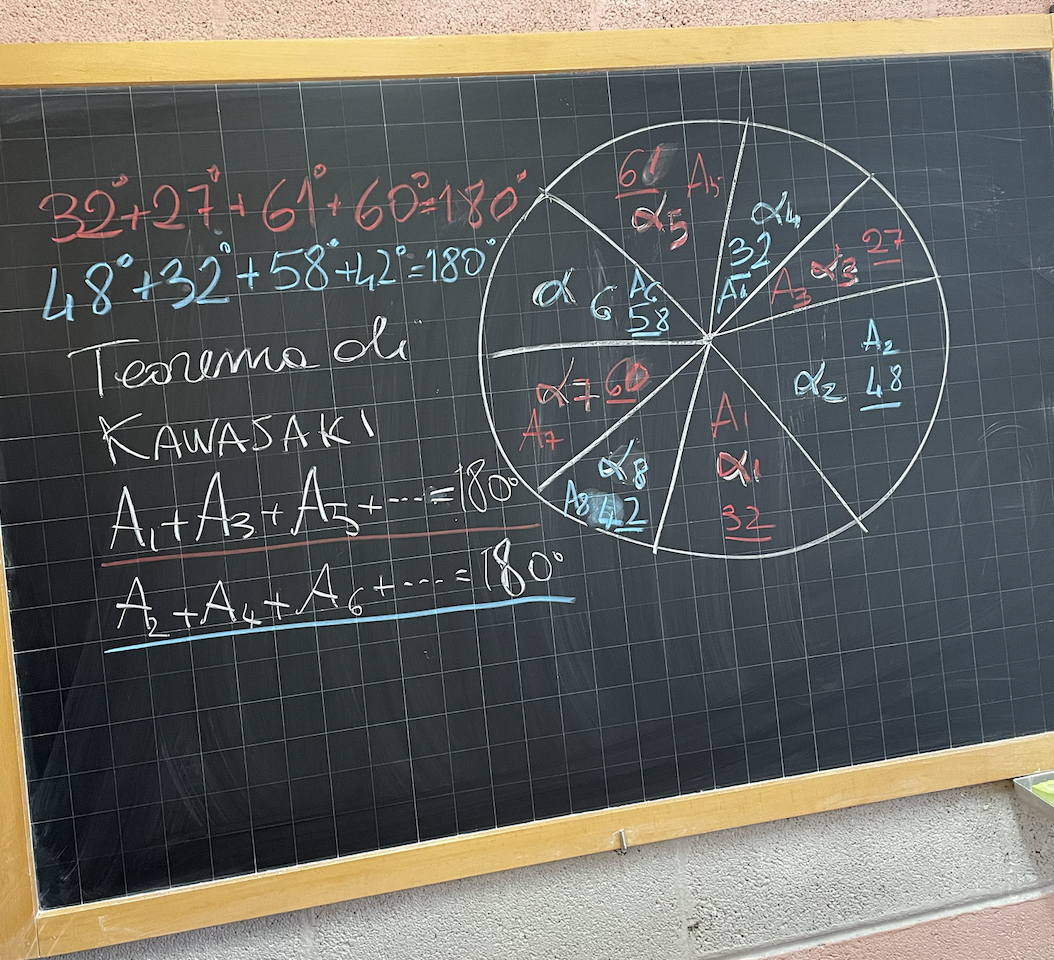 32°+27°+61°+60°=180°
48°+32°+58°+42°=180°
Teorema di
KAWASAKI
A₁+A₃+A₅+....=180°
A₂+A₄+A₆+....=180°
61 A₅
α₅
α₄
32
A₄
A₃ α₃ 27
α 6 A₆
58
A₂
α₂ 48
α7 60
A₇
A₁
α₁
32
α₈
A8 42